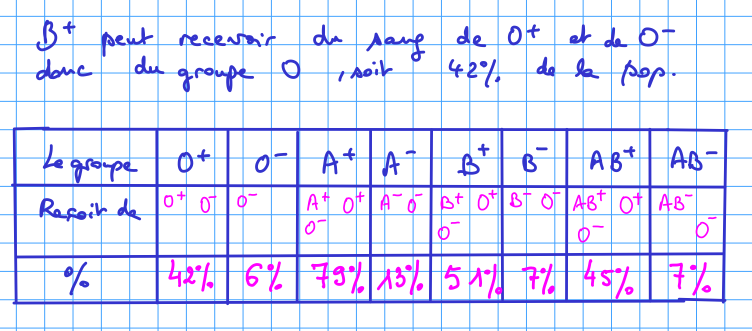 B+ peut recevoir du sang de O+ et de O-
donc du groupe O, soit 42% de la pop.
Le groupe O+ O- A+ A- B+ B- AB+ AB-
Reçoit de O+ O- O- A+ O+ O- A- O- B+ O+ O- B- O- AB+ O+ O- AB- O-
% 42% 6% 79% 13% 51% 7% 45% 7%